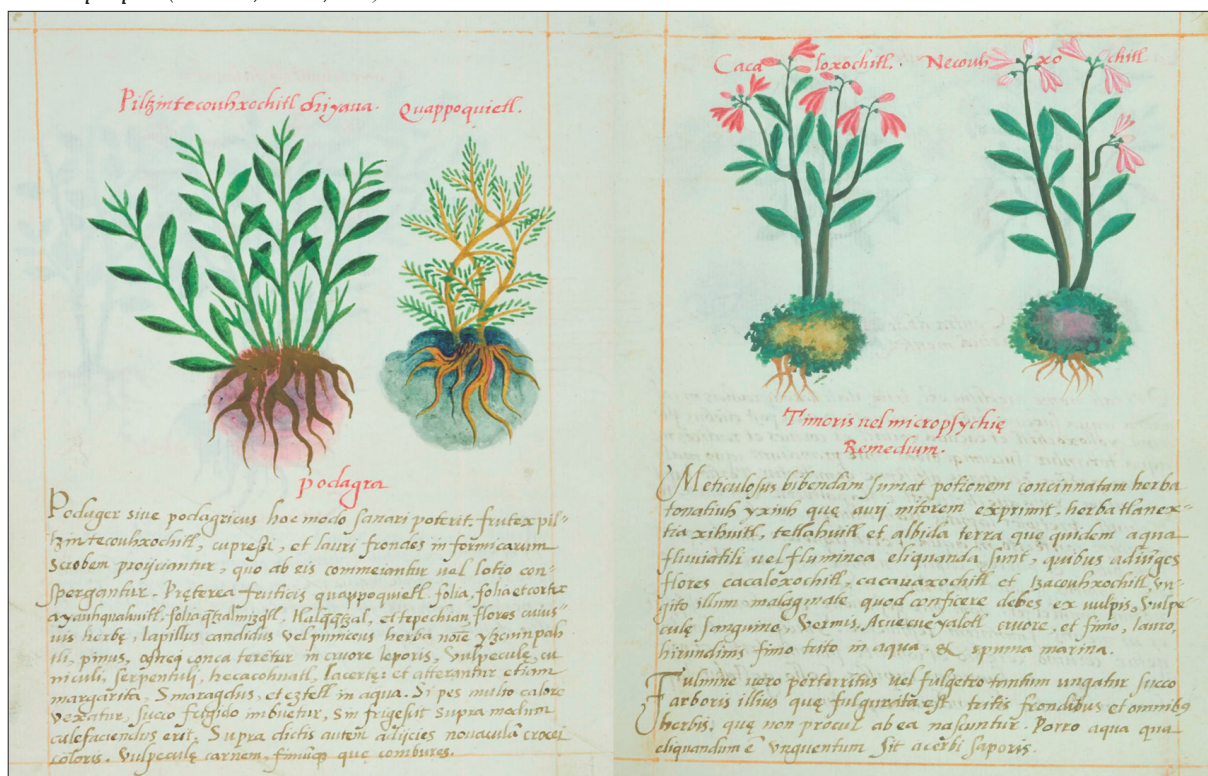 Piltzintecouhxochitl chiyana. Quappoquietl.
podagra
Podager siue podagricus hoc modo sanari poterit. frutex pil=
tzintecouhxochitl, cupressi, et lauri frondes in formicarum
scrobem proijciantur, quo ab eis commeiantur uel lotio con=
spergantur. Pręterea fruticis quappoquietl folia, folia et cortex
ayauhquahuitl, folia
et tepechian, flores cuius=
uis herbę, lapillus candidus vel puniceus herba
pinus, conca teretur in cruore leporis, vulpeculę, cu
niculi, serpentuli, hecacohuatl, lacertę: et atterantur etiam
margarita, Smaragdus, et eztetl in aqua. Si pes multo calore
vexatur, succo frigido imbuetur, Sin frigescit supra modum
calefaciendus erit. Supra dictis autem adijcies nouacula crocei
coloris. Vulpeculę carnem, fimumque quę combures.
Cacaloxochitl. Necouhxochitl
Timoris uel micropsychię
Remedium.
Meticulosus bibendam sumat potionem concinnatam herba
tonatiuh yxiuh quę auri nitorem exprimit. herba tlanex=
tia xihuitl, tetlahuitl et albida terra que quidem aqua
fluuiatili uel fluminea eliquanda sunt, quibus adiunges
flores cacaloxochitl, cacauaxochitl et tzacouhxochitl vn=
gito illum malagmate, quod conficere debes ex vulpis, Vulpe
culę sanguine, Vermis, Acuecueyalotl cruore, et fimo, lauro,
hirundinis fimo trito in aqua, & spuma marina.
Fulmine uero perterritus uel fulgetro tantum ungatur succo
arboris illius quę fulgurata est, tritis frondibus et omnibus
herbis, quę non procul ab ea nascuntur. Porro aqua qua
eliquandum e vnguentum sit acerbi saporis.